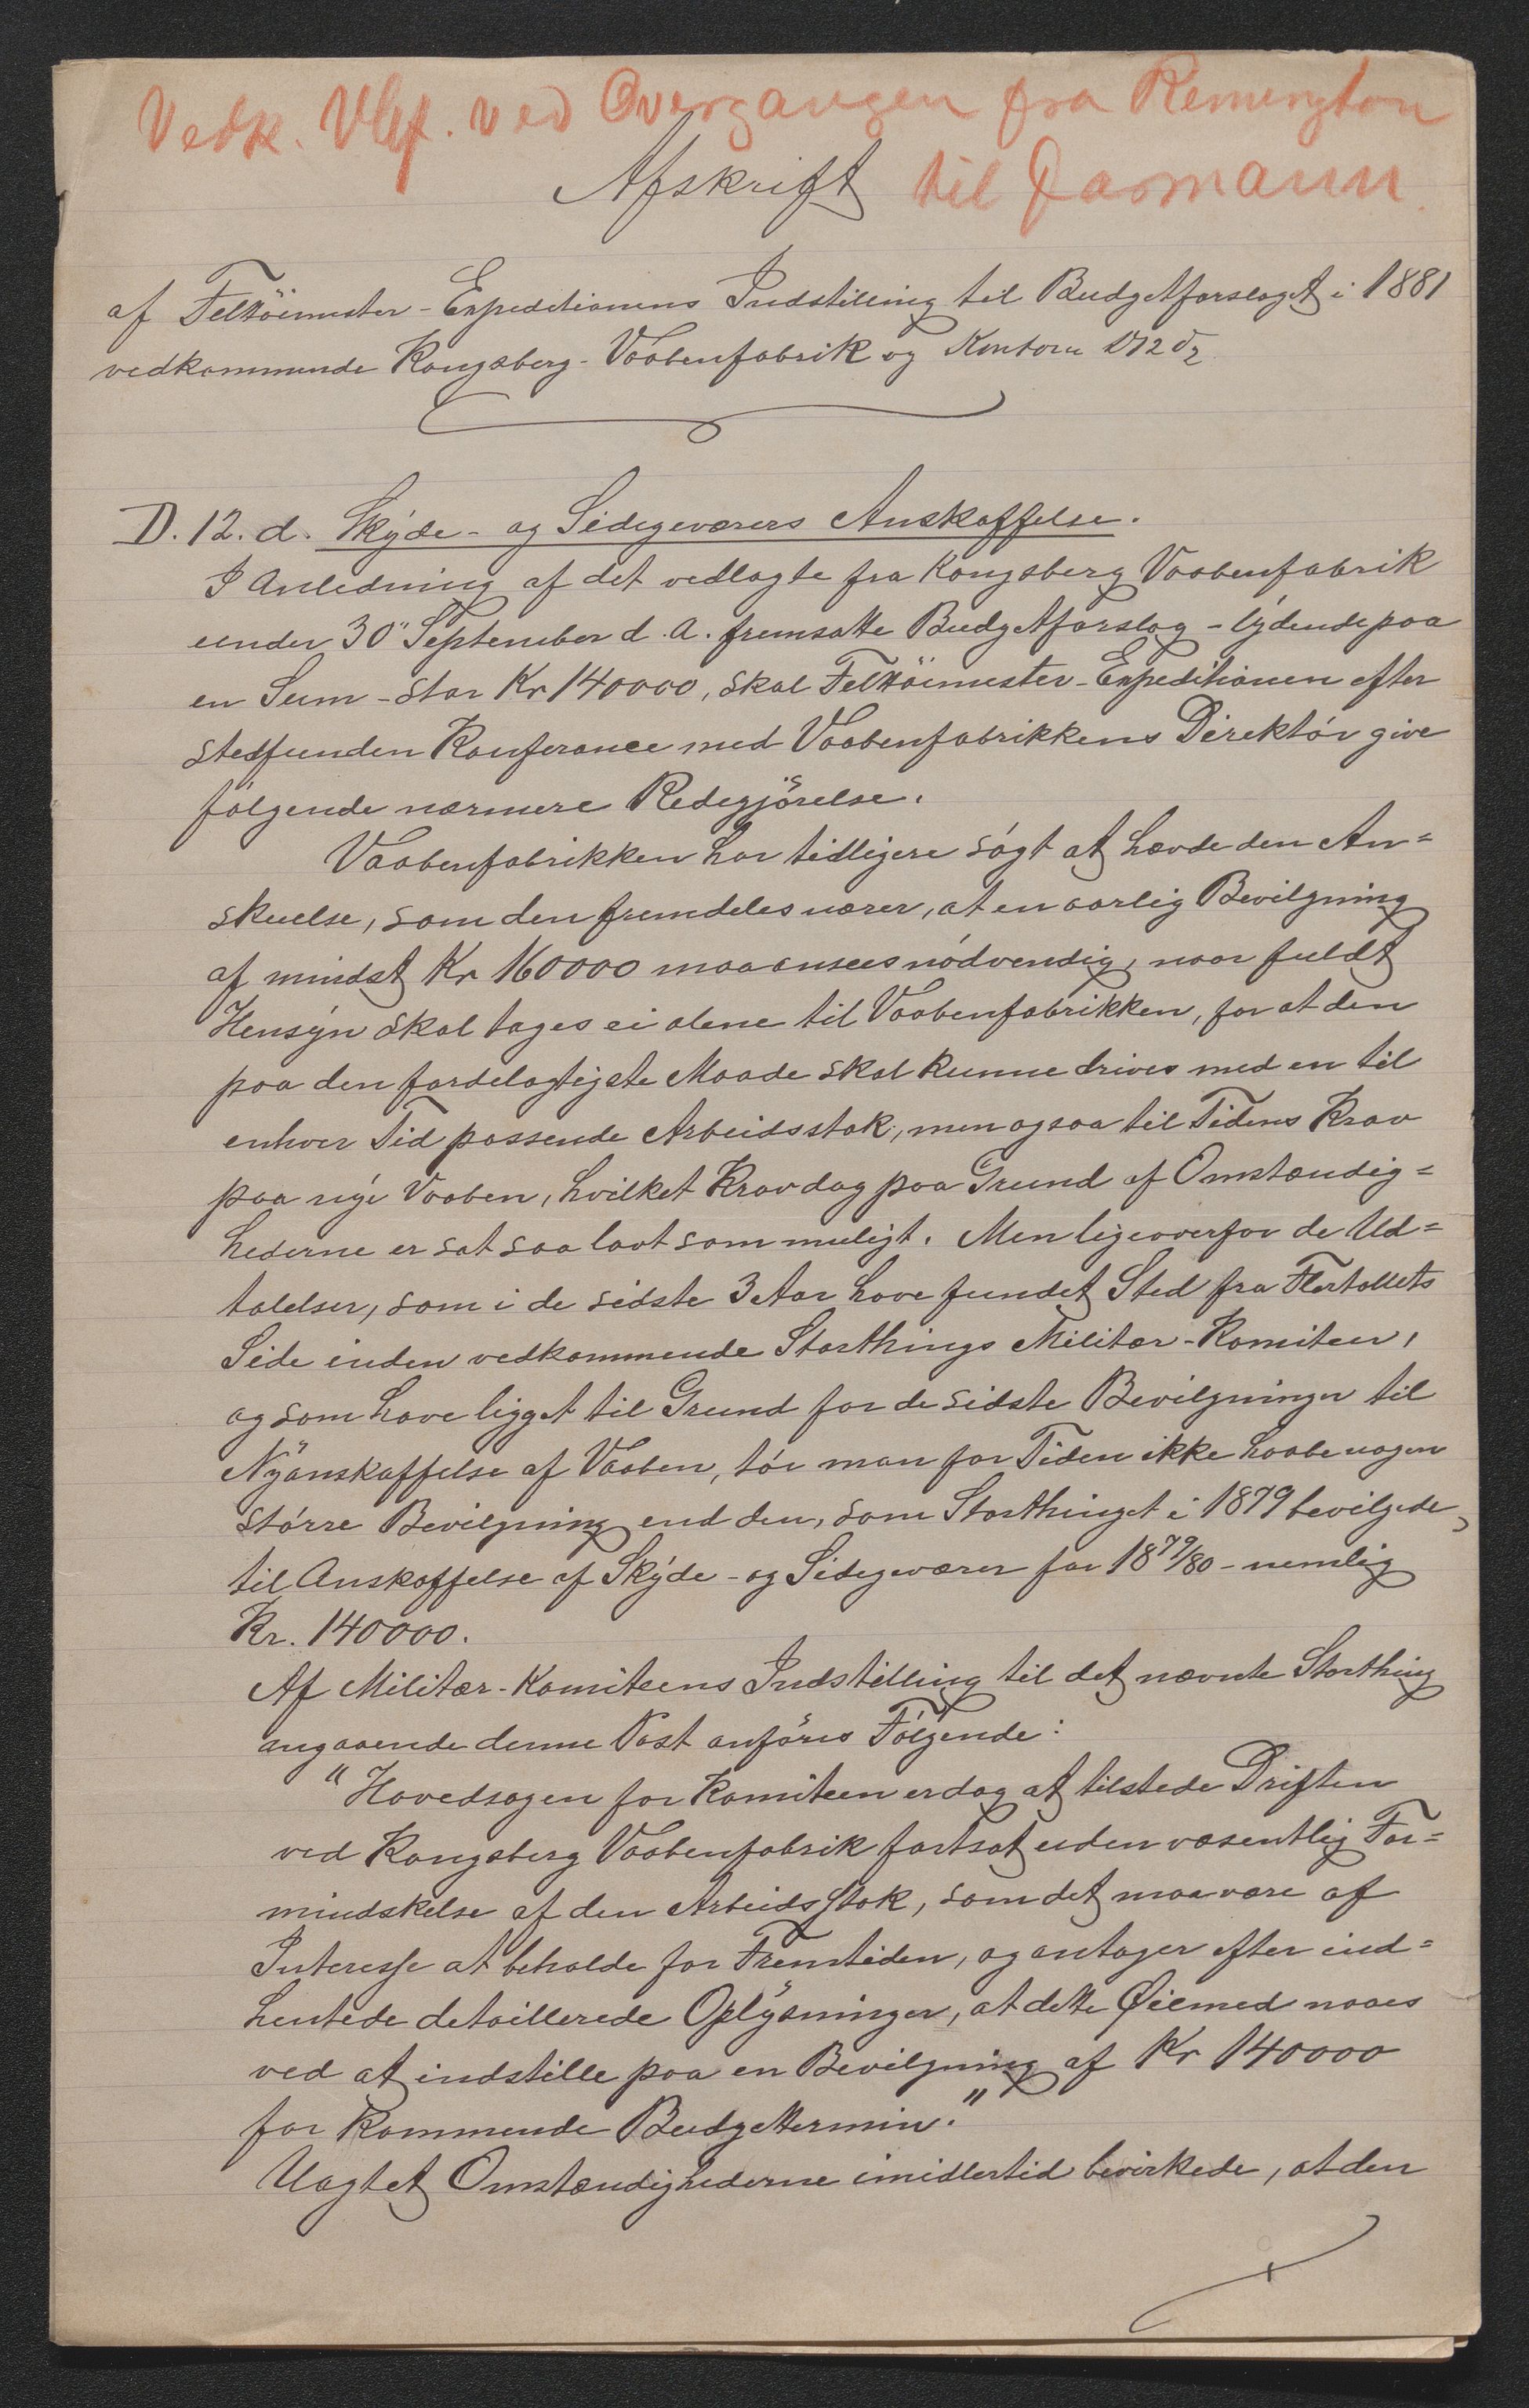 Vedk. Vbf. ved Overgangen fra Remington
til Jarmann.
Afskrift
af Felttöimester-Expeditionens Indstilling til Budgetforslaget i 1881
vedkommende Kongsberg-Vaabenfabrik og Kontoen D12d
D. 12. d. Skyde- og Sidegeværers Anskaffelse.
I Anledning af det vedlagte fra Kongsberg Vaabenfabrik
under 30" September d. A. fremsatte Budgetforslag - lydende paa
en Sum - stor Kr 140000, skal Felttöimester-Expeditionen efter
stedfunden Konferance med Vaabenfabrikkens Direktör give
fölgende nærmere Redegjörelse.
Vaabenfabrikken har tidligere sögt at hævde den An=
skuelse, som den fremdeles nærer, at en aarlig Bevilgning
af mindst Kr 160000 maa ansees nödvendig, naar fuldt
Hensyn skal tages ei alene til Vaabenfabrikken, for at den
paa den fordelagtigste Maade skal kunne drives med en til
enhver Tid passende Arbeidsstok, men ogsaa til Tidens Krav
paa nye Vaaben, hvilket Krav dog paa Grund af Omstændig=
hederne er sat saa lavt som muligt. Men ligeoverfor de Ud=
talelser, som i de sidste 3 Aar have fundet Sted fra Flertallets
Side inden vedkommende Storthings Militær-Komiteer,
og som have ligget til Grund for de sidste Bevilgninger til
Nyanskaffelse af Vaaben, tör man for Tiden ikke haabe nogen
större Bevilgning end den, som Storthinget i 1879 bevilgede
til Anskaffelse af Skyde- og Sidegeværer for 1879/80 - nemlig
Kr. 140000.
Af Militær-Komiteens Indstilling til det nævnte Storthing
angaaende denne Post anföres Fölgende:
"Hovedsagen for Komiteen er dog at tilstede Driften
ved Kongsberg Vaabenfabrik fortsat uden væsentlig For=
mindskelse af den Arbeidsstok, som det maa være af
Interesse at beholde for Fremtiden, og antager efter ind=
hentede detaillerede Oplysninger, at dette Øiemed naaes
ved at indstille paa en Bevilgning af Kr 140000
for kommende Budgettermin."
Uagtet Omstændighederne imidlertid bevirkede, at den